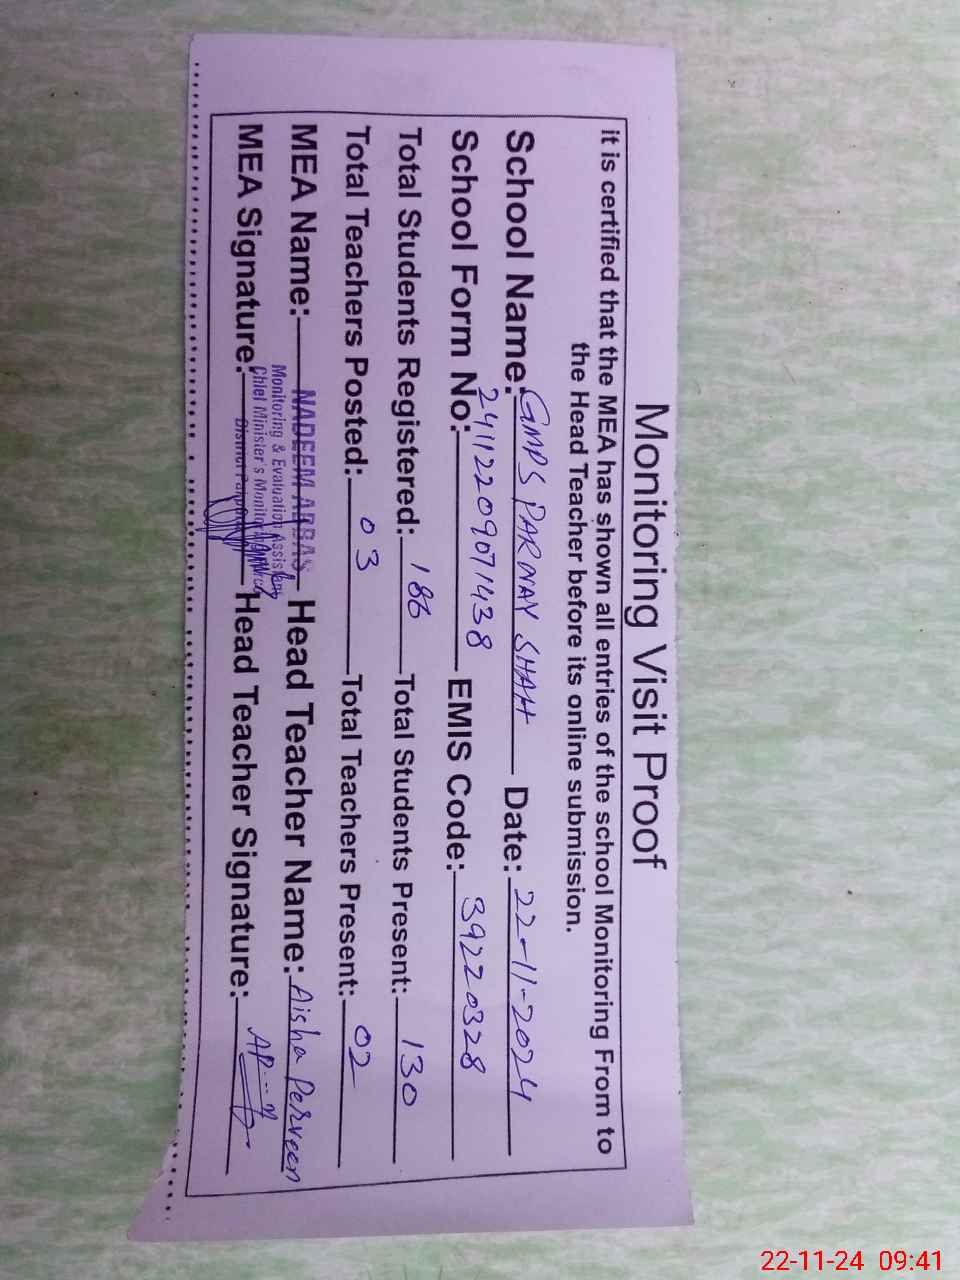 Monitoring Visit Proof
it is certified that the MEA has shown all entries of the school Monitoring From to
the Head Teacher before its online submission.
School Name: GMPS PARNAY SHAH Date: 22-11-2024
School Form No: 24112209071438 EMIS Code: 39220328
Total Students Registered: 186 Total Students Present: 130
Total Teachers Posted: 03 Total Teachers Present: 02
MEA Name: NADEEM ABBAS Head Teacher Name: Aisha Perveen
Monitoring & Evaluation Assistant
Chief Minister's Monitoring
MEA Signature: Head Teacher Signature:
District
22-11-24 09:41